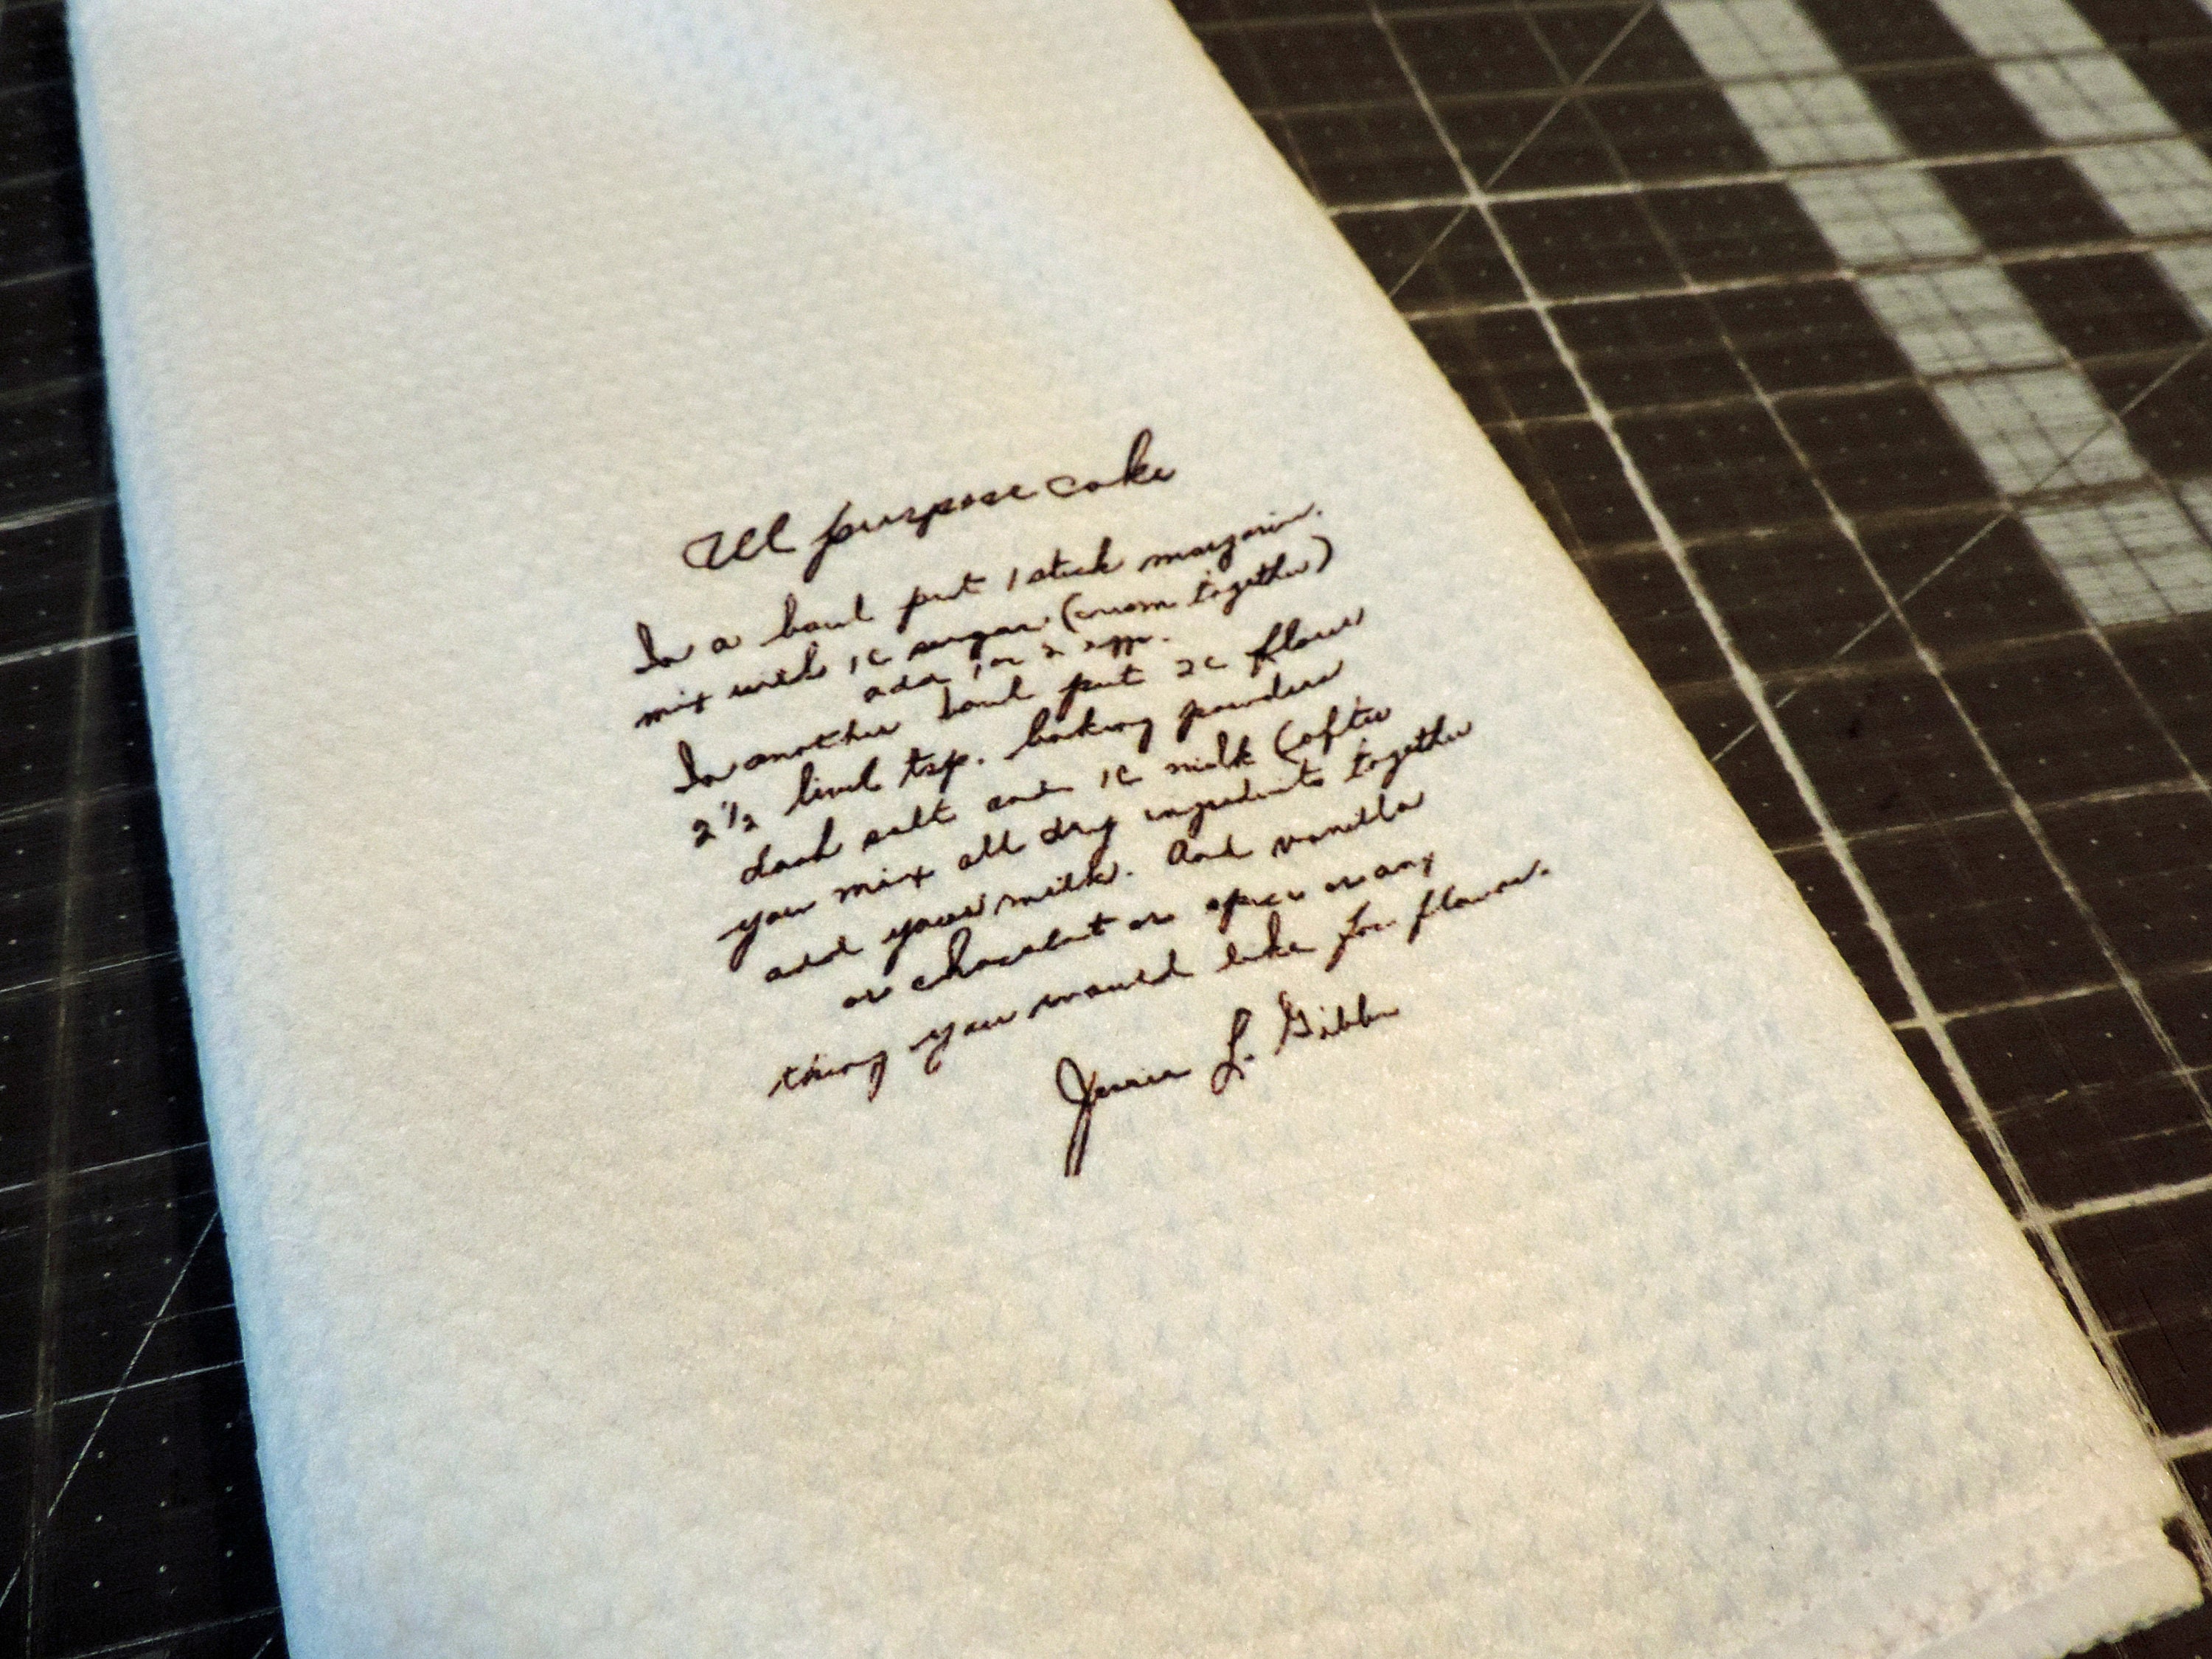 All purpose cake
In a bowl put 1 stick margarin.
mix with 1c sugar (cream together)
add 1 or 2 eggs.
In another bowl put 2c flour
2 1/2 level tsp. baking powder
dash salt and 1c milk (after
you mix all dry ingredients together
add your milk. Add vanilla
or chocolat or spice or any
thing you would like for flavor.
L. Gibbs